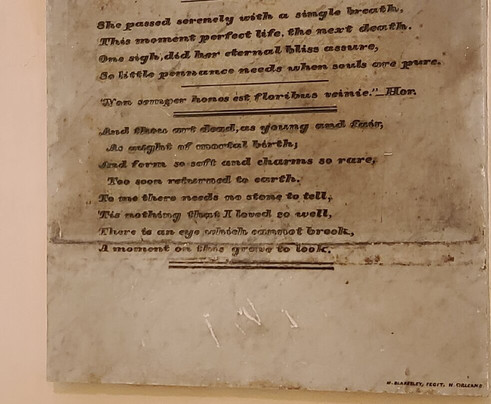 She passed serenely with a single breath,
This moment perfect life, the next death.
One sigh, did her eternal bliss assure,
So little pennance needs when souls are pure.
"Non semper honos est floribus veinie."—Hor.
And thou art dead, as young and fair,
As aught of mortal birth;
And form so soft and charms so rare,
Too soon returned to earth.
To me there needs no stone to tell,
'Tis nothing that I loved so well,
There is an eye which cannot brook,
A moment on this grave to look.
H. BLAKESLEY, FECIT. N. ORLEANS